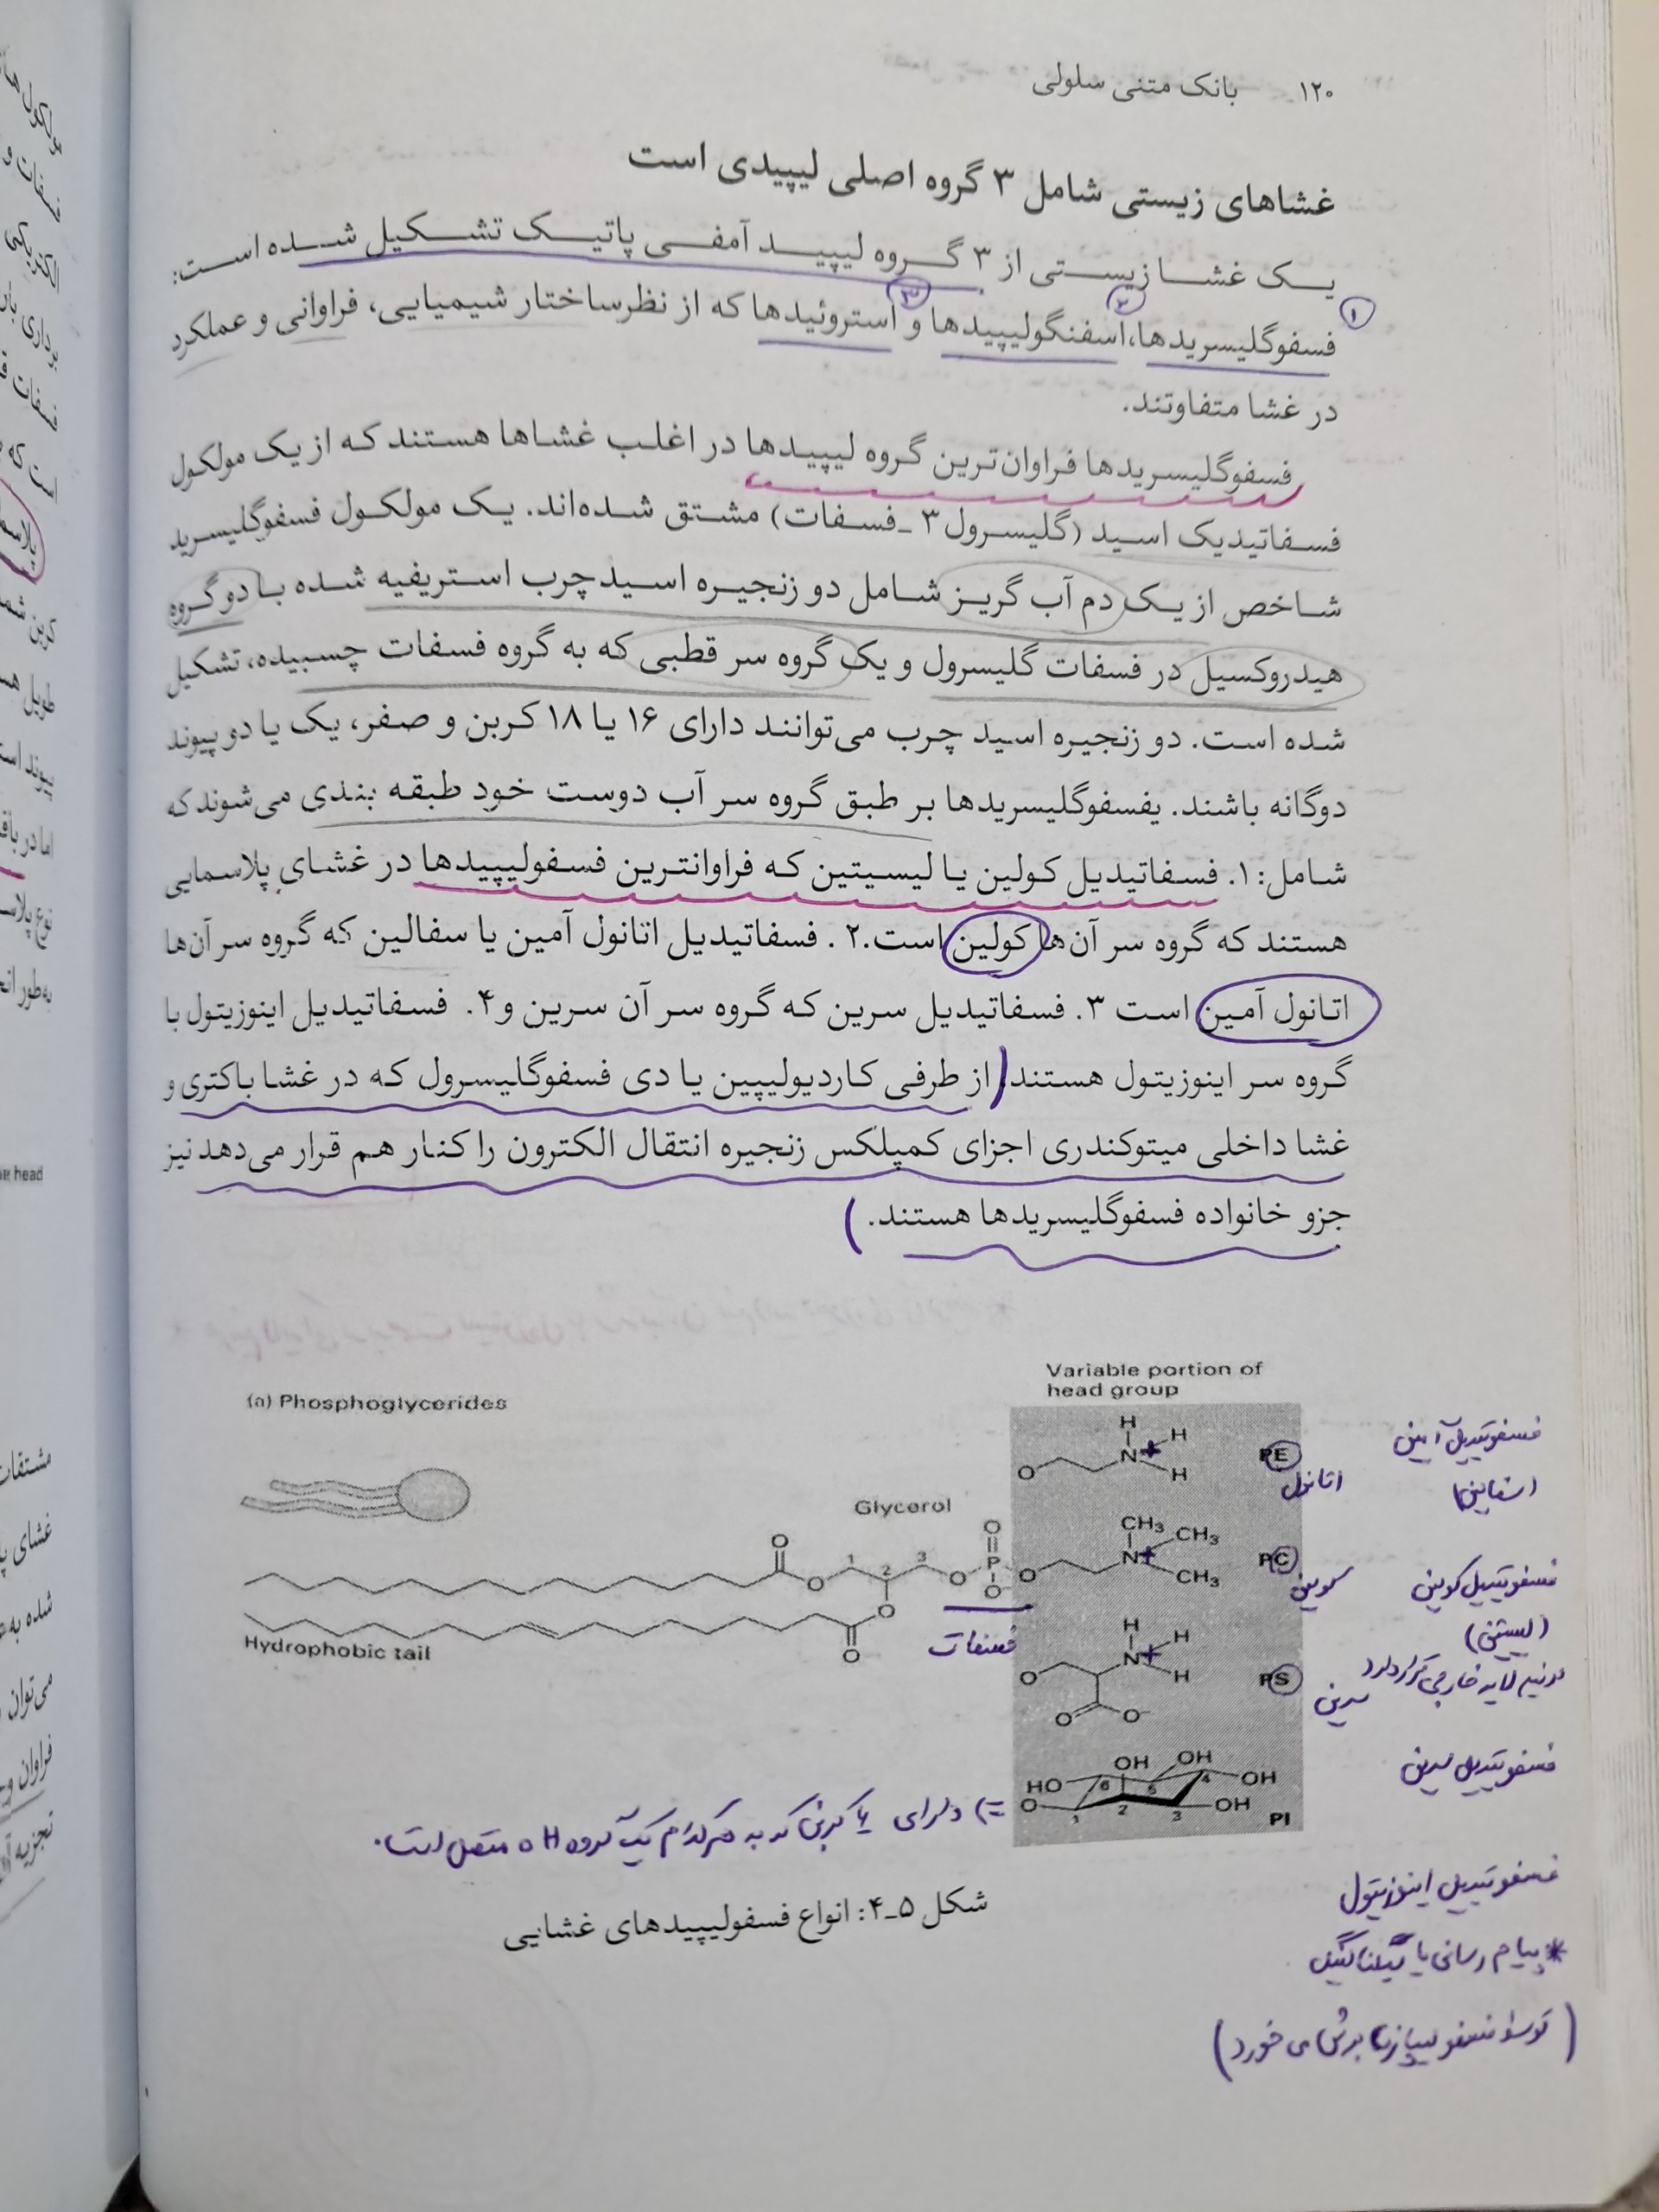 ۱۲۰ بانک متنی سلولی
غشاهای زیستی شامل ۳ گروه اصلی لیپیدی است
یک غشا زیستی از ۳ گروه لیپید آمفی پاتیک تشکیل شده است:
۱ ۲ ۳
فسفوگلیسریدها، اسفنگولیپیدها و استروئیدها که از نظر ساختار شیمیایی، فراوانی و عملکرد
در غشا متفاوتند.
فسفوگلیسریدها فراوان‌ترین گروه لیپیدها در اغلب غشاها هستند که از یک مولکول
فسفاتیدیک اسید (گلیسرول ۳ ـ فسفات) مشتق شده‌اند. یک مولکول فسفوگلیسرید
شاخص از یک دم آب گریز شامل دو زنجیره اسید چرب استریفیه شده با دو گروه
هیدروکسیل در فسفات گلیسرول و یک گروه سر قطبی که به گروه فسفات چسبیده، تشکیل
شده است. دو زنجیره اسید چرب می‌توانند دارای ۱۶ یا ۱۸ کربن و صفر، یک یا دو پیوند
دوگانه باشند. یفسفوگلیسریدها بر طبق گروه سر آب دوست خود طبقه بندی می‌شوند که
شامل: ۱. فسفاتیدیل کولین یا لیسیتین که فراوانترین فسفولیپیدها در غشای پلاسمایی
هستند که گروه سر آن‌ها کولین است.۲ . فسفاتیدیل اتانول آمین یا سفالین که گروه سر آن‌ها
اتانول آمین است ۳. فسفاتیدیل سرین که گروه سر آن سرین و ۴. فسفاتیدیل اینوزیتول با
گروه سر اینوزیتول هستند. از طرفی کاردیولیپین یا دی فسفوگلیسرول که در غشا باکتری و
غشا داخلی میتوکندری اجزای کمپلکس زنجیره انتقال الکترون را کنار هم قرار می‌دهد نیز
جزو خانواده فسفوگلیسریدها هستند.
(a) Phosphoglycerides
Variable portion of
head group
PE
اتانول
Glycerol
PC
Hydrophobic tail
فسفات
PS
سرین
PI
فسفوتیدیل کولین
فسفوتیدیل سرین
دارای ۶ کربن که به هر کدام یک گروه OH متصل است.
فسفوتیدیل اینوزیتول
شکل ۵ـ۴: انواع فسفولیپیدهای غشایی
* پیام رسانی یا سیگنالینگ
(توسط فسفولیپازها برش می خورد)